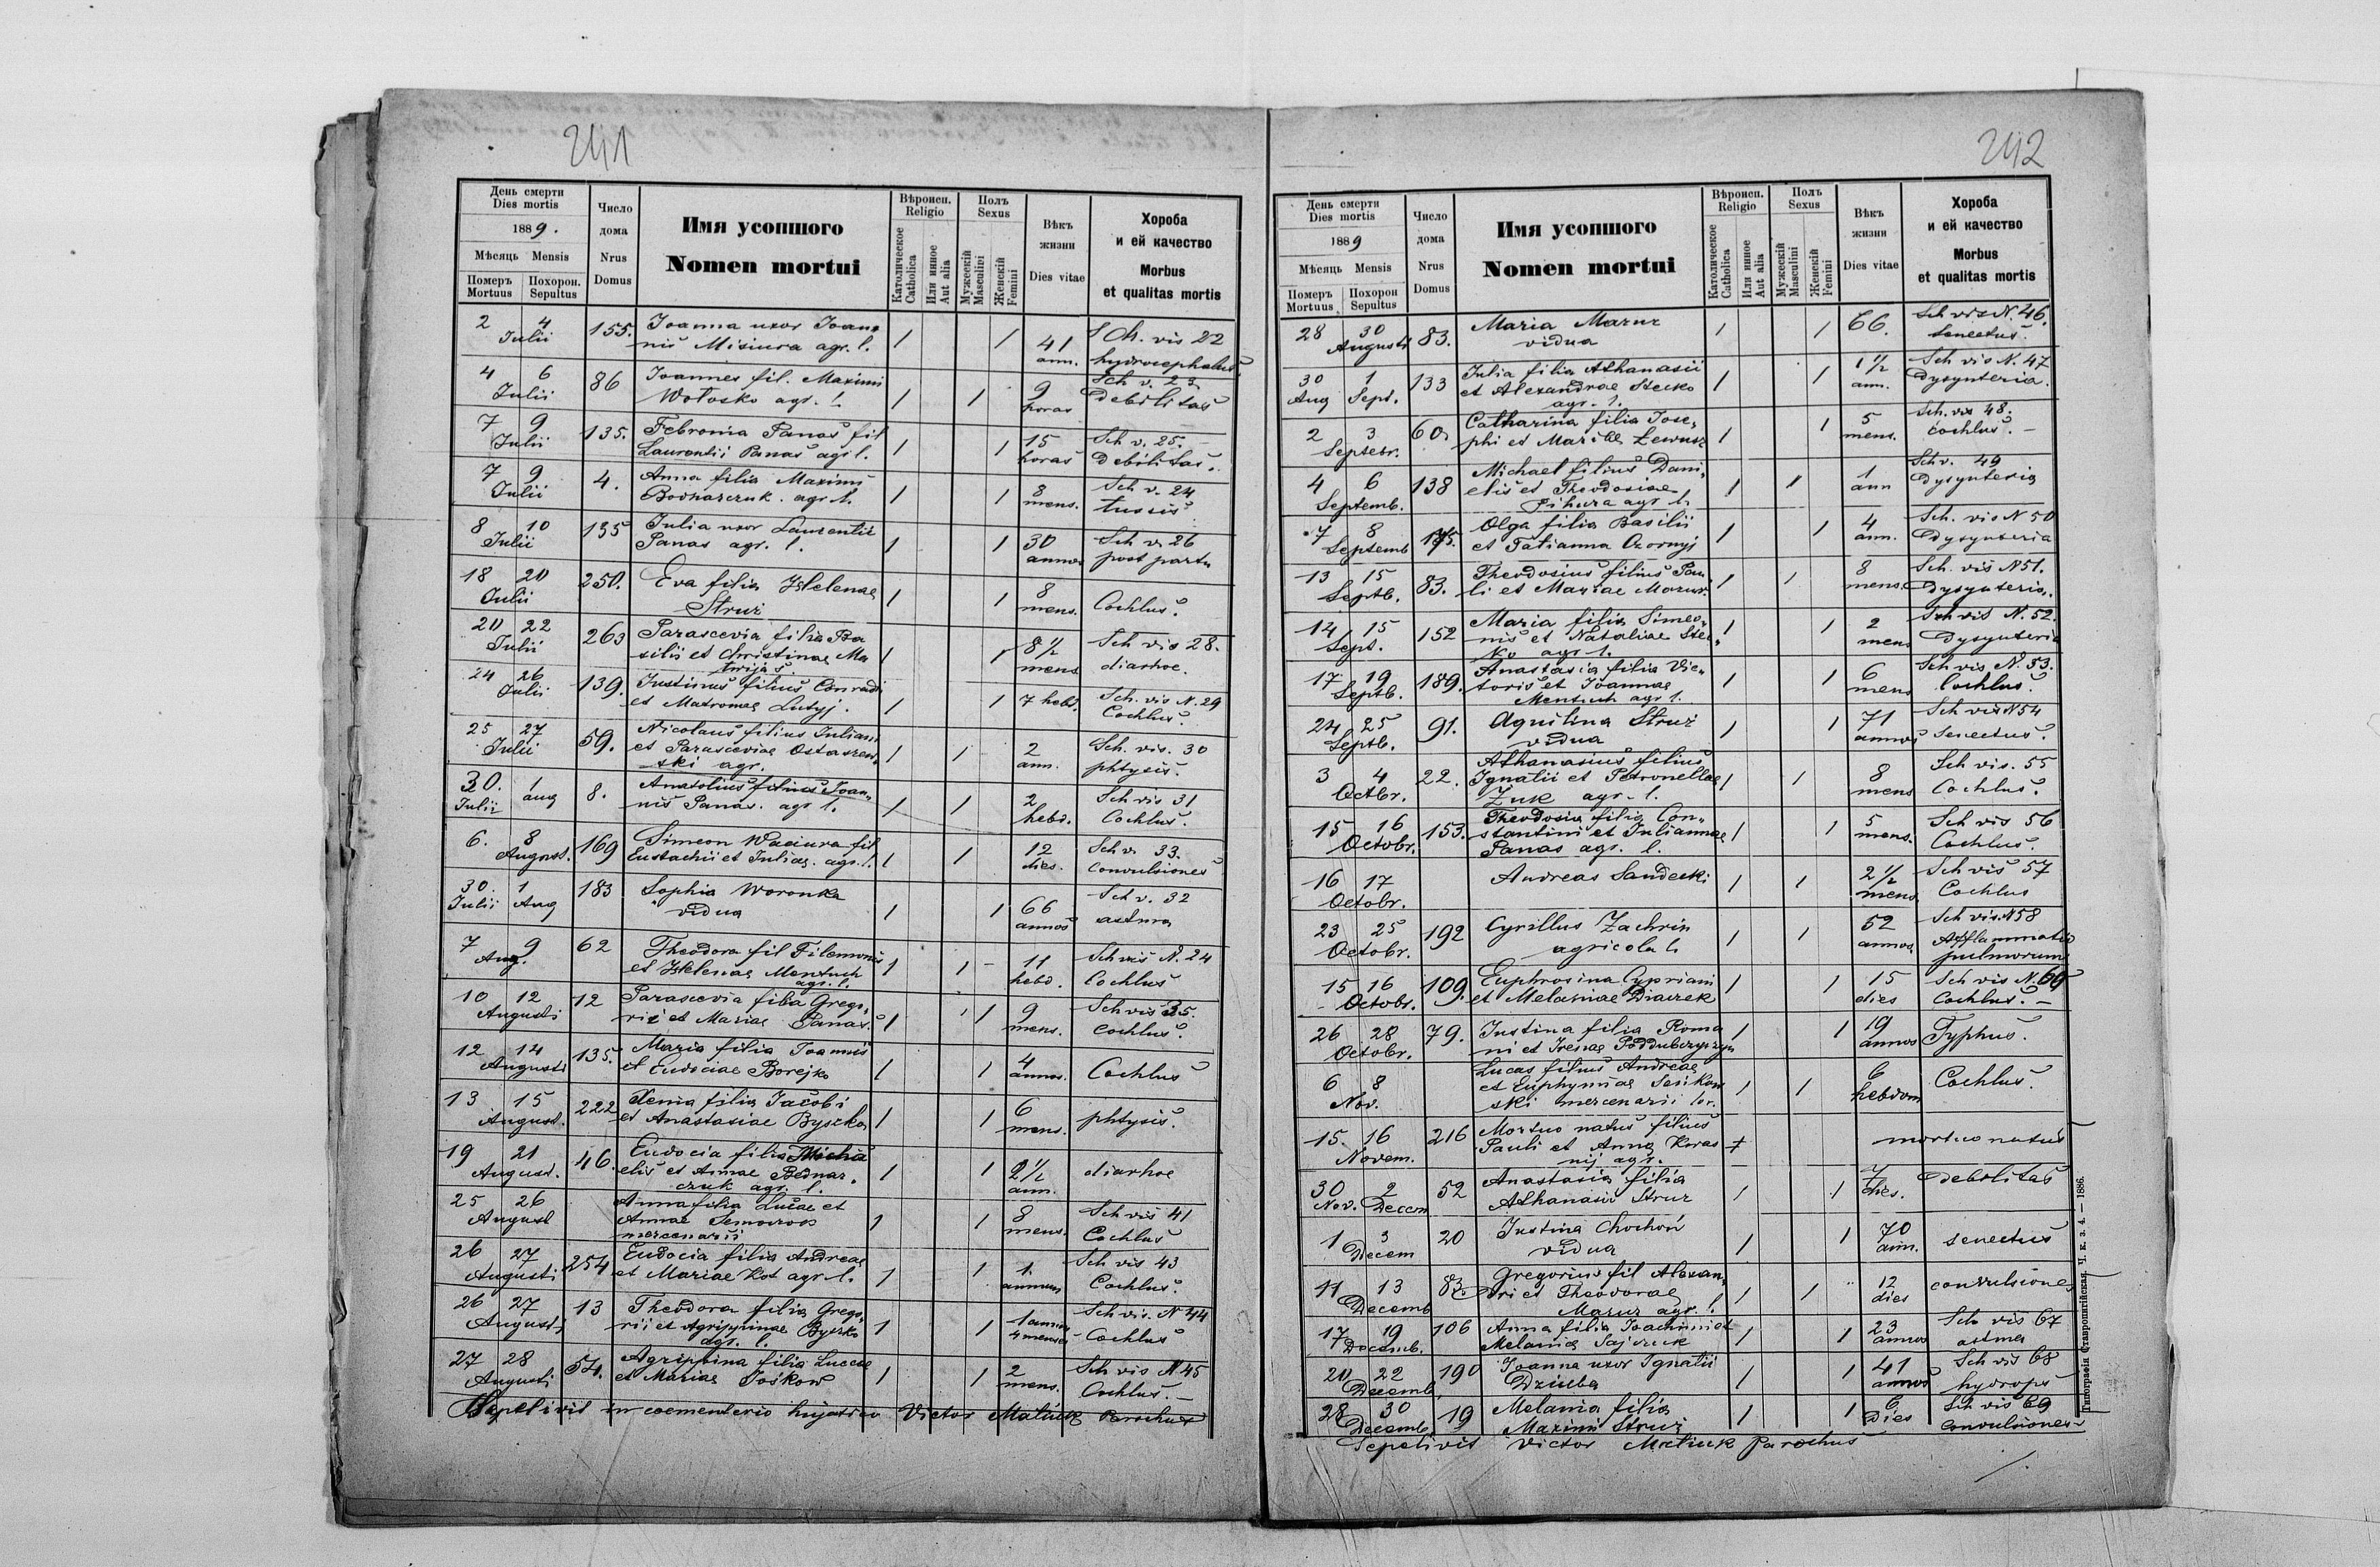 241
День смерти
Dies mortis
1889.
Мѣсяць Mensis
Померъ Mortuus
Похорон. Sepultus
Число дома
Nrus Domus
Имя усопшого
Nomen mortui
Вѣроисп.
Religio
Католическое Catholica
Или иное Aut alia
Полъ
Sexus
Мужескій Masculini
Женскій Femini
Вѣкъ жизни
Dies vitae
Хороба
и ей качество
Morbus
et qualitas mortis
2 4 Julii 155. Joanna uxor Joan
nis Misiura agr. l. 1 1 41 ann. Sch. vis 22
hydrocephalus
4 6 Julii 86 Joannes fil. Maximi
Wołosko agr. l. 1 1 9 horas Sch v. 23
Debilitas
7 9 Julii 135. Febronia Panas fil
Laurentii Panas agr l. 1 1 15 horas Sch v. 25.
Debilitas.
7 9 Julii 4. Anna filia Maximi
Bodnarczuk. agr. l. 1 1 8 mens. Sch v. 24
tussis
8 10 Julii 135 Julia uxor Laurentii
Panas agr. l. 1 1 30 annos Sch v. 26
post partu
18 20 Julii 250. Eva filia Helenae
Struz 1 1 8 mens. Cochlus.
20 22 Julii 263 Parascevia filia Ba
silii et Christinae Ma
twijas 1 1 8 1/2 mens Sch vis 28.
diarhoe.
24 26 Julii 139. Justinus filius Conradi
et Matronae Lutyj. 1 1 7 hebd. Sch. vis N. 29
Cochlus.
25 27 Julii 59. Nicolaus filius Juliani
et Parasceviae Ostaszew
ski agr. 1 1 2 ann. Sch. vis. 30
phtysis.
30. Julii 1 aug 8. Anatolius filius Joan
nis Panas. agr l. 1 1 2 hebd. Sch vis 31
Cochlus.
6. 8 August. 169 Simeon Waciura fil
Eustachii et Juliae. agr. l. 1 1 12 dies. Sch v. 33.
convulsiones
30. Julii 1 Aug 183 Sophia Woronka
vidua 1 1 66 annos Sch v. 32
astma
7 9 Aug. 62 Theodora fil Filemonis
et Helenae Mentuch
agr. l. 1 1 11 hebd. Sch vis N. 24
Cochlus
10 12 Augusti 12 Parascevia filia Grego
rii et Mariae Panas. 1 1 9 mens. Sch vis 35.
Cochlus.
12 14 Augusti 135. Maria filia Joannis
et Eudociae Borejko 1 1 4 annos. Cochlus
13 15 August. 222 Xenia filia Jacobi
et Anastasiae Byszko 1 1 6 mens. phtysis.
19 21 August. 46. Eudocia filia Micha
elis et Annae Bednar
czuk agr. l. 1 1 2 1/2 ann. diarhoe
25 26 August Anna filia Lucae et
Annae
mercenarii 1 1 8 mens. Sch vis 41
Cochlus
26 27 Augusti 254 Eudocia filia Andreae
et Mariae Kot agr l. 1 1 1 annum Sch vis 43
Cochlus.
26 27 Augusti 13 Theodora filia Grego
rii et Agrippinae Byszko
agr. l. 1 1 1 annum 4 menses Sch vis. N 44
Cochlus
27 28 Augusti 54. Agrippina filia Lucae
et Mariae Joskow 1 1 2 mens. Sch vis N 45
Cochlus.
Sepelivit in coementerio Victor Matiuk Parochus
242
День смерти
Dies mortis
1889
Мѣсяць Mensis
Померъ Mortuus
Похорон Sepultus
Число дома
Nrus Domus
Имя усопшого
Nomen mortui
Вѣроисп.
Religio
Католическое Catholica
Или иное Aut alia
Полъ
Sexus
Мужескій Masculini
Женскій Femini
Вѣкъ жизни
Dies vitae
Хороба
и ей качество
Morbus
et qualitas mortis
28 30 Augusti 83. Maria Mazur
vidua 1 1 66. Sch vis N. 46.
Senectus.
30 Aug 1 Sept. 133 Julia filia Athanasii
et Alexandrae Stecko
agr. l. 1 1 1 1/2 ann. Sch vis N. 47
Dysynteria.
2 3 Septebr. 60. Catharina filia Jose
phi et Mariae Lewusz 1 1 5 mens. Sch. vis 48.
cochlus.
4 6 Septemb. 138 Michael filius Dani
elis et Theodosiae
Fihura agr l. 1 1 1 ann Sch v. 49
Dysynteria
7 8 Septemb 175. Olga filia Basilii
et Tatianna Czornyj 1 1 4 ann. Sch. vis N 50
Dysynteria
13 15 Septb. 83. Theodosius filius Pau
li et Mariae Mazur 1 1 8 mens. Sch. vis N 51.
Dysynteria.
14 15 Sept. 152 Maria filia Simeo
nis et Nataliae Stec
ko agr l. 1 1 2 mens Sch vis N. 52.
Dysynteria
17 19 Septb. 189. Anastasia filia Vic
toris et Joannae
Mentuch agr l. 1 1 6 mens Sch vis N. 53.
Cochlus.
24 25 Septb. 91. Agustina Struz
vidua 1 1 71 annos Sch vis N 54
Senectus.
3 4 Octbr. 22. Athanasius filius
Ignatii et Petronellae
Żuk agr. l. 1 1 8 mens Sch vis. 55
Cochlus.
15 16 Octobr. 153. Theodosia filia Con
stantini et Juliannae
Panas agr. l. 1 1 5 mens. Sch vis 56
Cochlus.
16 17 Octobr. Andreas Sandecki 1 1 2 1/2 mens Sch vis 57
Cochlus
23 25 Octobr. 192 Cyrillus Zachrin
agricola l. 1 1 52 annos Sch vis. N 58
Afflammatio
pulmorum
15 16 Octobr. 109. Euphrosina Cypriani
et Melaniae Diaczek 1 1 15 dies Sch vis N. 60
Cochlus.
26 28 Octobr. 79. Justina filia Roma
ni et Irenae Poddubczyszyn 1 1 19 annos Typhus.
6 8 Nov. Lucas filius Andreae
et Euphymiae Sesikow
ski mercenarii 1 1 6 hebdom Cochlus.
15 16 Novem. 216 Mortuo natus filius
Pauli et Anna Koras
nij agr. mortuo natus
30 Nov. 2 Decem 52 Anastasia filia
Athanasii Struz 1 1 7 dies. Debilitas
1 3 Decem 20 Justina Chochoń
vidua 1 1 70 ann. senectus
11 13 Decemb 83. Gregorius fil Alexan
dri et Theodorae
Mazur agr. l. 1 1 12 dies convulsiones
17 19 Decemb. 106 Anna filia Joachimi et
Melania Sajczuk 1 1 23 annos Sch vis 67
astma
20 22 Decemb 190 Joanna uxor Ignatii
Dziuba 1 1 41 annos Sch vis 68
hydrops
28 30 Decemb. 19 Melania filia
Maximi Struz 1 1 6 Dies Sch vis 69
Convulsiones
Sepelivit Victor Matiuk Parochus
Типографія Ставропигійская. Ч. к. з. 4. — 1886.